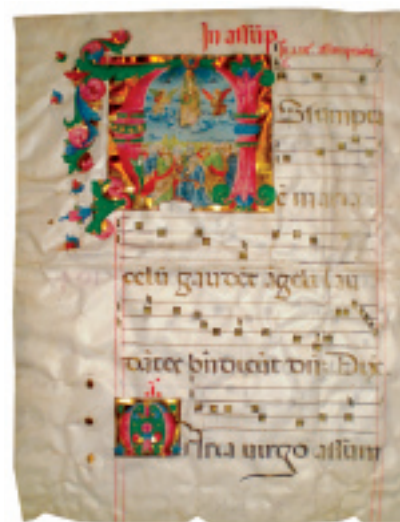 In assūp
Assumpta
ē maria ī
celū gaudēt āgeli lau
dātes bn̄dicūt dn̄m Dix
Maria virgo assum